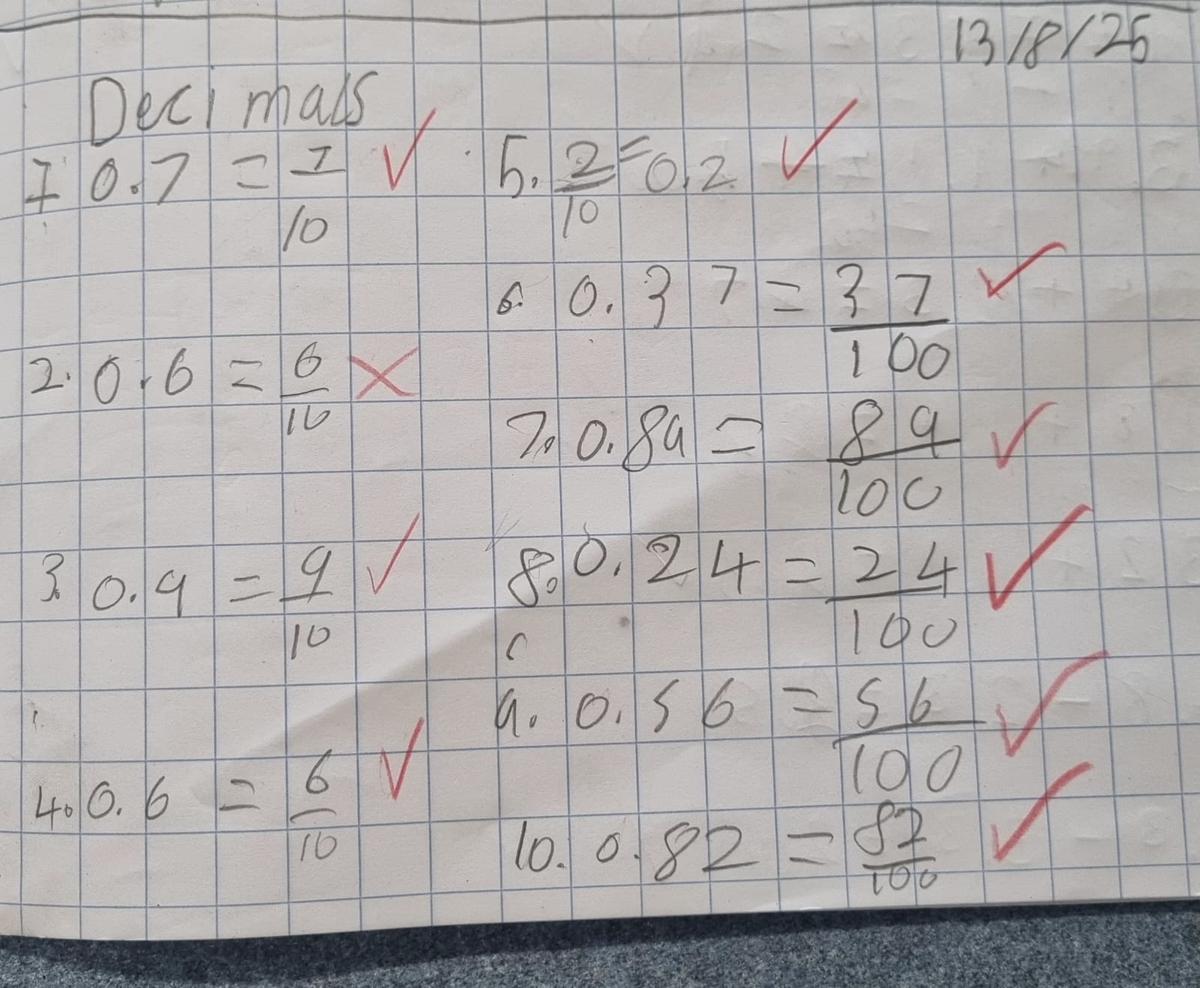 13/8/25
Decimals
1 0.7 = 7/10 ✓
2. 0.6 = 6/10 ✗
3. 0.9 = 9/10 ✓
4. 0.6 = 6/10 ✓
5. 2/10 = 0.2 ✓
6. 0.37 = 37/100 ✓
7. 0.89 = 89/100 ✓
8. 0.24 = 24/100 ✓
9. 0.56 = 56/100 ✓
10. 0.82 = 82/100 ✓